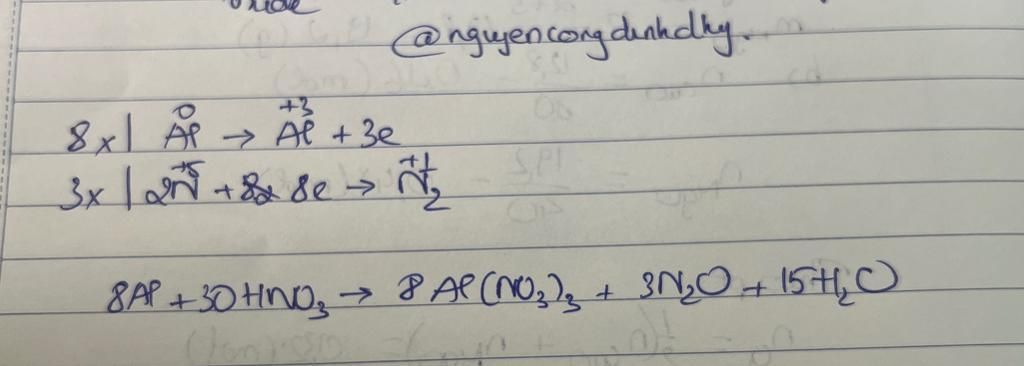 @nguyencongdinhdky.
8x | Al⁰ → Al⁺³ + 3e
3x | 2N⁺⁵ + 8e → N₂⁺¹
8Al + 30HNO₃ → 8Al(NO₃)₃ + 3N₂O + 15H₂O